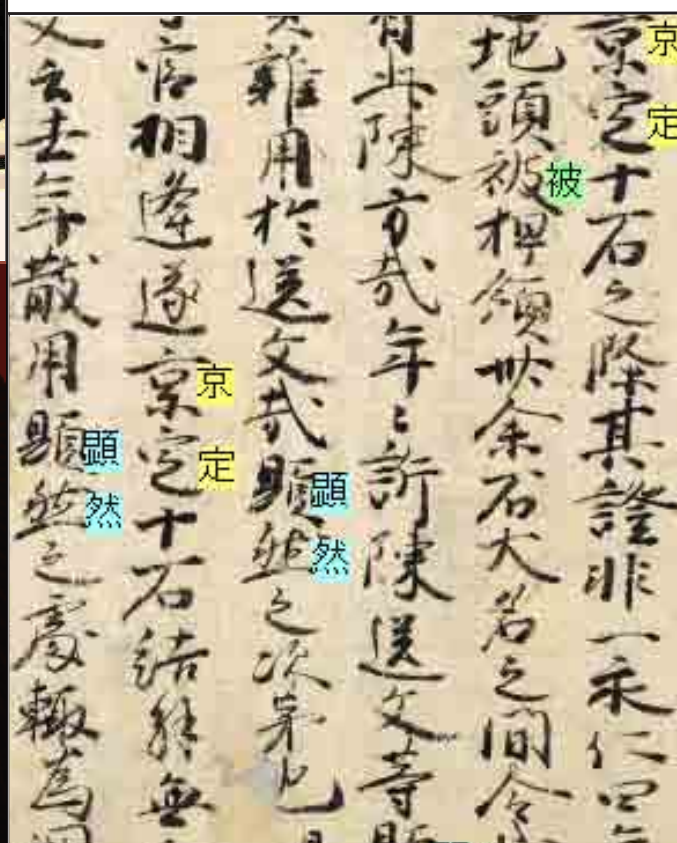 京定
京定十石之際其證非一永仁四年
被
地頭被押領卅余石大名之間令
陳方哉年々訴陳送文等
顕然
難用於送文哉顕然之次第也
京定
官相逢遂京定十石結解無
顕然
云去年散用顕然之處輙為